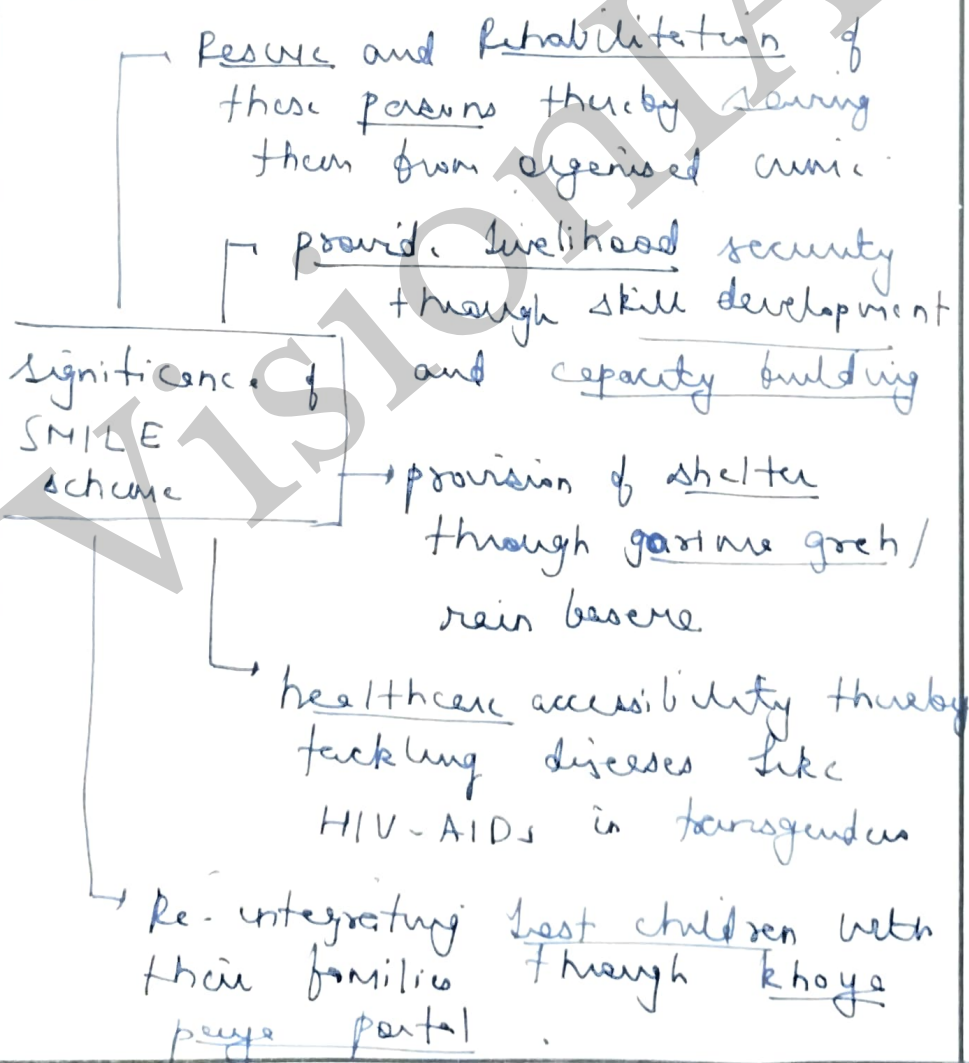 Rescue and Rehabilitation of
these persons thereby saving
them from organised crime
provide livelihood security
through skill development
and capacity building
Significance of
SMILE
scheme
provision of shelter
through garima greh/
rain basera
healthcare accessibility thereby
tackling diseases like
HIV-AIDs in transgenders
Re-integrating lost children with
their families through khoya
paya portal.
VisionIA